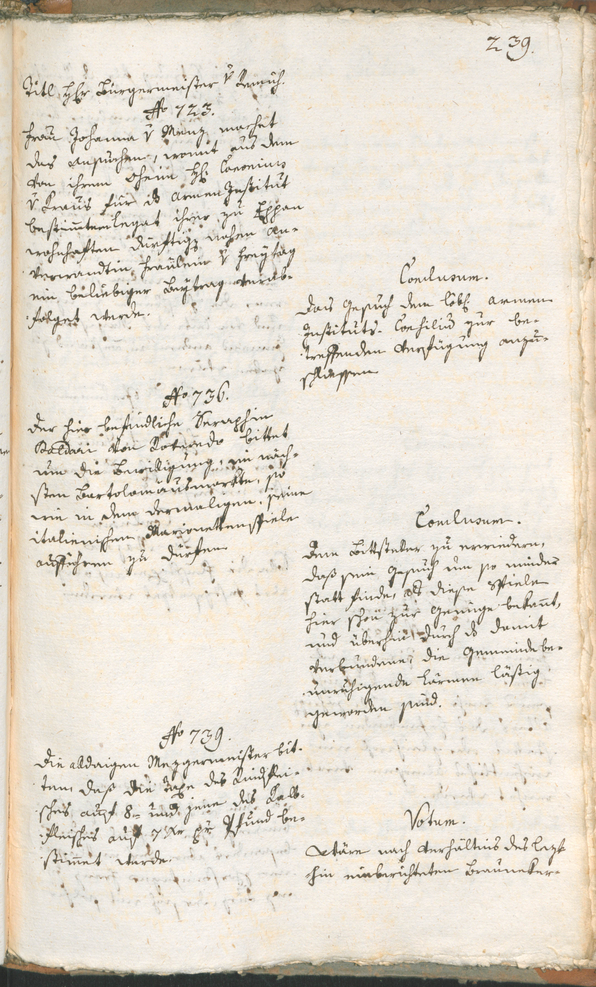 239.
Titl. Hr. Bürgermeister v
No 723.
Frau Johanna v Menz machet
das Ansuchen, womit aus dem
von ihrem Oheim
v für das Armen Institut
bestimmten Legat ihrer zu Eppan
wohnhaften dürftigen nahen An-
verwandtin Fräulein v Freytag
ein beliebiger Beytrag verab-
folget werde.
Conclusum.
Das Gesuch dem löbl. Armen
Instituts-Consilium zur be-
treffenden Verfügung anzu-
schliessen
No 736.
Der hier befindliche Seraphin
von Roveredo bittet
um die Bewilligung, im näch-
sten Bartolomäusmarkte, so
wie in dem dermaligen, seine
italienischen Marionettenspiele
aufführen zu dürfen
Conclusum.
Dem Bittsteller zu erwiedern,
daß sein Gesuch um so minder
statt finde, als diese Spiele
hier schon zur Genüge bekannt,
und überhin durch das damit
verbundene, die Gemeinde be-
unruhigende Lärmen lästig
geworden sind.
No 739.
Die allaigen Mezgermeister bit-
ten daß die Taxe des Rindflei-
sches auf 8 und jene des Kalb-
fleisches auf 7 Xr. pr. Pfund be-
stimmet werde.
Votum.
Wäre nach Verhältnis des lezt-
hin einberichteten Brauneker-